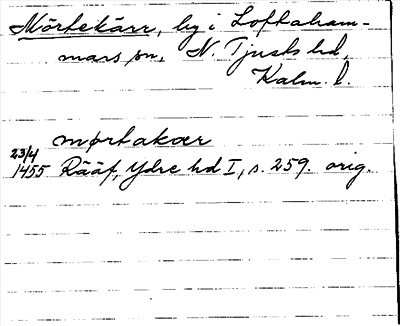 Mörtekärr, by i Loftaham-
mars sn, N. Tjusts hd,
Kalm. l.
mørtakær
23/4
1455 Rääf, Ydre hd I, s. 259. orig.